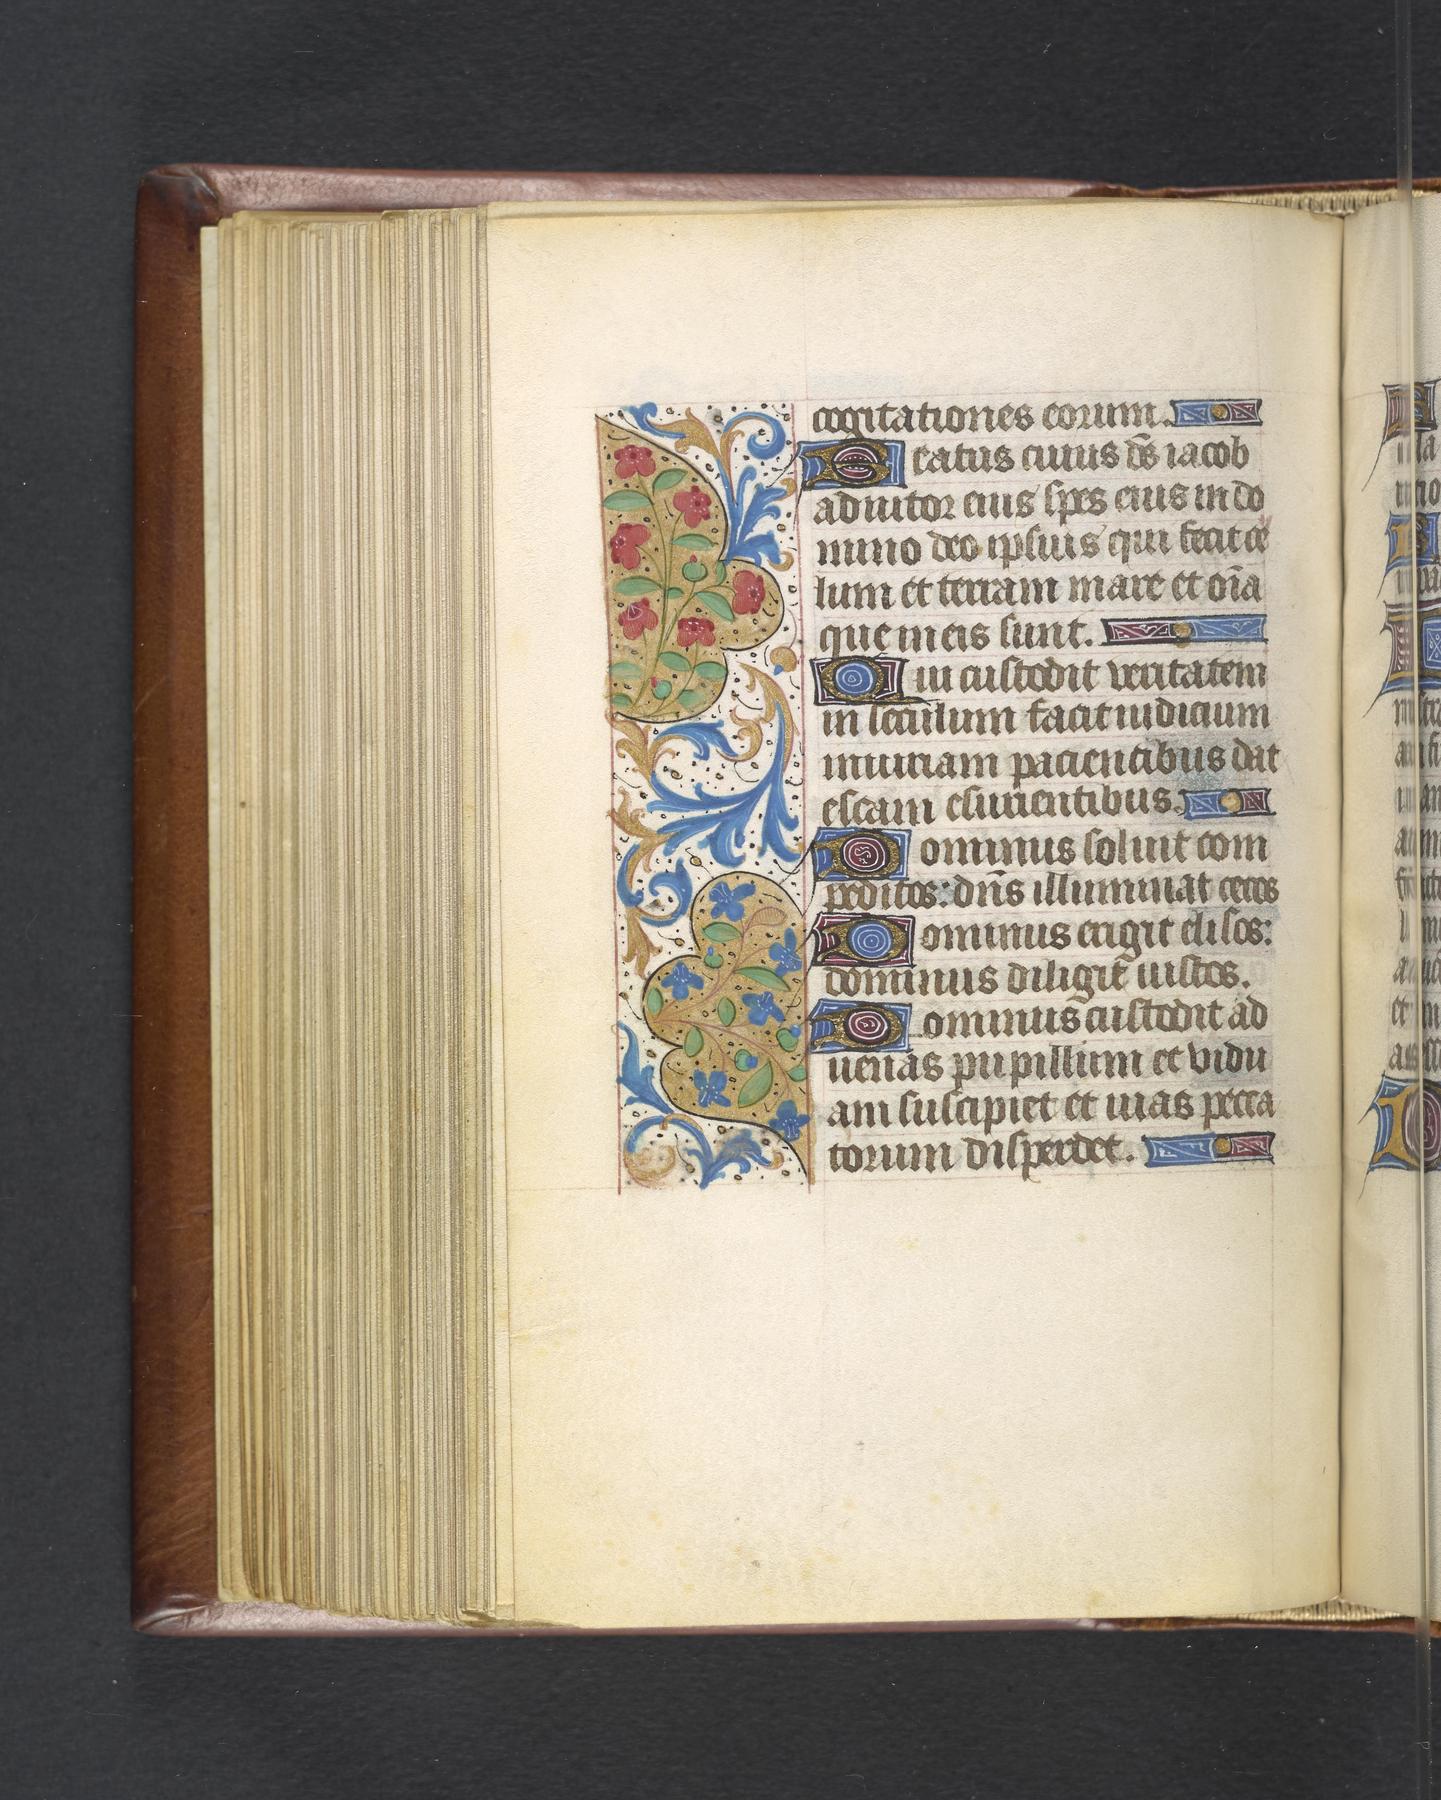 cogitationes eorum.
Beatus cuius ds̄ iacob
adiutor eius spes eius in do
mino deo ipsius qui fecit ce
lum et terram mare et oīa
que in eis sunt.
Qui custodit veritatem
in seculum facit iudicium
iniuriam pacientibus dat
escam esurientibus.
Dominus soluit com
peditos: dn̄s illuminat cecos
Dominus erigit elisos:
dominus diligit iustos.
Dominus custodit ad
uenas pupillum et vidu
am suscipiet et uias pecca
torum disperdet.